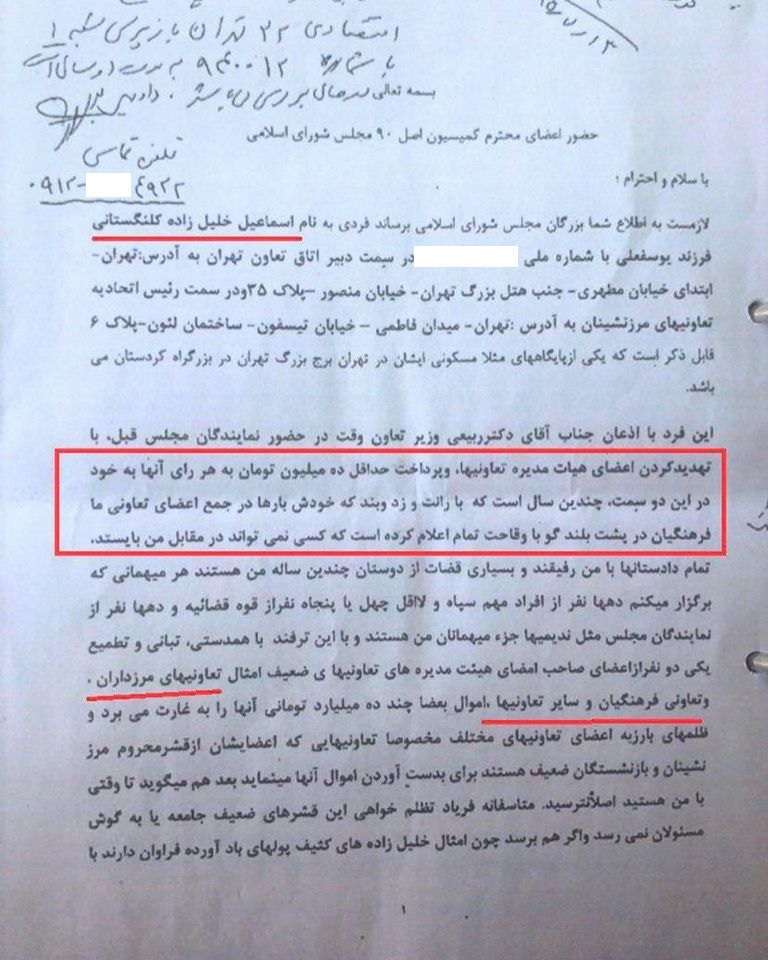 اقتصادی ۳۲ تهران بازپرسی شعبه ۱
با شماره ۹۴۰۰۱۲ به مدت ارسال
بسمه تعالی
در حال بررسی می باشد.
تلفن تماسی
۰۹۱۲- ۴۹۲۲
حضور اعضای محترم کمیسیون اصل ۹۰ مجلس شورای اسلامی
با سلام و احترام ؛
لازمست به اطلاع شما بزرگان مجلس شورای اسلامی برساند فردی به نام اسماعیل خلیل زاده کلنگستانی
فرزند یوسفعلی با شماره ملی در سمت دبیر اتاق تعاون تهران به آدرس:تهران-
ابتدای خیابان مطهری- جنب هتل بزرگ تهران- خیابان منصور –پلاک ۳۵ودر سمت رئیس اتحادیه
تعاونیهای مرزنشینان به آدرس :تهران- میدان فاطمی – خیابان تیسفون- ساختمان لئون-پلاک ۶
قابل ذکر است که یکی ازپایگاههای مثلا مسکونی ایشان در تهران برج بزرگ تهران در بزرگراه کردستان می
باشد.
این فرد با اذعان جناب آقای دکترربیعی وزیر تعاون وقت در حضور نمایندگان مجلس قبل، با
تهدیدکردن اعضای هیات مدیره تعاونیها، وپرداخت حداقل ده میلیون تومان به هر رای آنها به خود
در این دو سمت، چندین سال است که با رانت و زد وبند که خودش بارها در جمع اعضای تعاونی ما
فرهنگیان در پشت بلند گو با وقاحت تمام اعلام کرده است که کسی نمی تواند در مقابل من بایستد.
تمام دادستانها با من رفیقند و بسیاری قضات از دوستان چندین ساله من هستند هر میهمانی که
برگزار میکنم دهها نفر از افراد مهم سپاه و لااقل چهل یا پنجاه نفراز قوه قضائیه و دهها نفر از
نمایندگان مجلس مثل ندیمیها جزء میهمانان من هستند و با این ترفند با همدستی، تبانی و تطمیع
یکی دو نفرازاعضای صاحب امضای هیئت مدیره های تعاونیها ی ضعیف امثال تعاونیهای مرزداران ،
وتعاونی فرهنگیان و سایر تعاونیها ،اموال بعضا چند ده میلیارد تومانی آنها را به غارت می برد و
ظلمهای بارزبه اعضای تعاونیهای مختلف مخصوصا تعاونیهایی که اعضایشان ازقشرمحروم مرز
نشینان و بازنشستگان ضعیف هستند برای بدست آوردن اموال آنها مینماید بعد هم میگوید تا وقتی
با من هستید اصلاًنترسید. متاسفانه فریاد تظلم خواهی این قشرهای ضعیف جامعه یا به گوش
مسئولان نمی رسد واگر هم برسد چون امثال خلیل زاده های کثیف پولهای باد آورده فراوان دارند با
۱